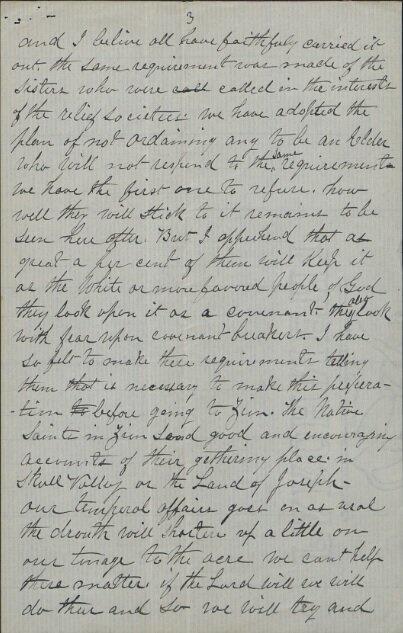 3
and I belive all have faithfuly carried it
out. the same requirement was made of the
Sisters who were call called in the interests
of the relief societies. we have adopted the
plan of not ordaining any to be an Elder
who will not respond to the same requirements
we have the first one to refuse. how
well they will stick to it remains to be
seen here after. But I apprehend that as
great a per cent of them will keep it
as the White or more favored people of God
they look upon it as a covenant, they also look
with fear upon covenant breakers. I have
so felt to make these requirements telling
them that is necessary to make this prepera-
-tion to before going to Zion. The Native
Saints in Zion send good and encouraging
accounts of their gathering place in
Skull Valley or the Land of Joseph-
our temporal affairs goes on as usal
the drouth will shorten up a little on
our tunage to the acre we cant help
these matter. if the Lord will we will
do thus and so we will try and